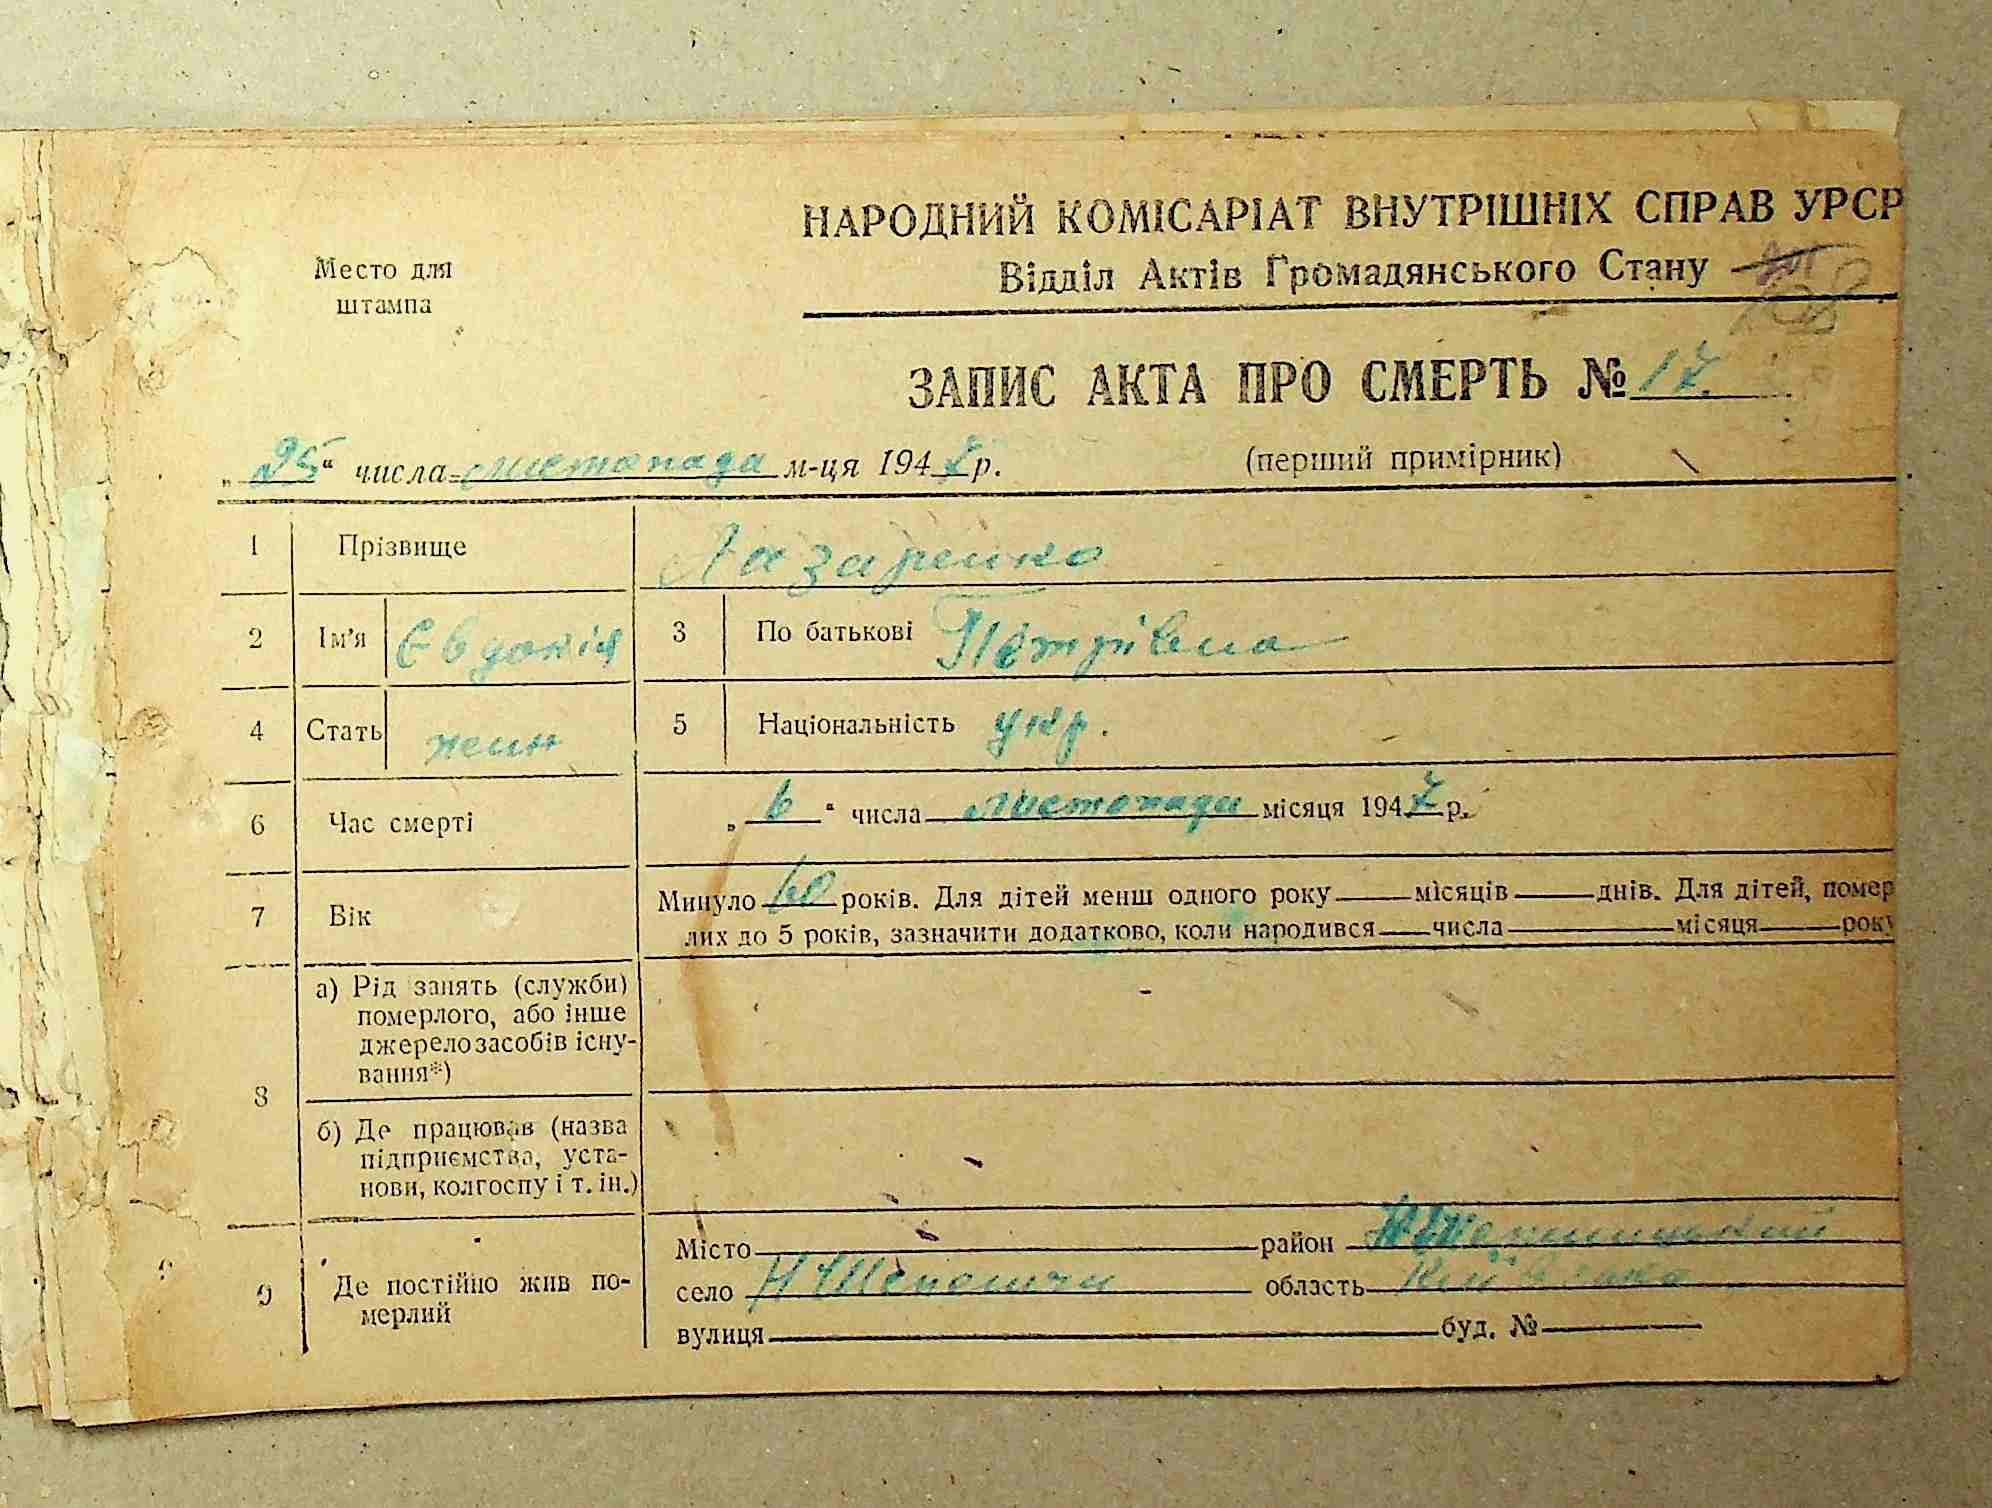 НАРОДНИЙ КОМІСАРІАТ ВНУТРІШНІХ СПРАВ УРСР
Место для штампа
Відділ Актів Громадянського Стану
ЗАПИС АКТА ПРО СМЕРТЬ № 17.
„25“ числа листопада м-ця 1947 р. (перший примірник)
1 Прізвище Лазаренко
2 Ім'я Євдокія 3 По батькові Петрівна
4 Стать жін 5 Національність укр.
6 Час смерті „6“ числа листопада місяця 1947 р.
7 Вік Минуло 60 років. Для дітей менш одного року місяців днів. Для дітей, помер
лих до 5 років, зазначити додатково, коли народився числа місяця року
8 а) Рід занять (служби)
померлого, або інше
джерело засобів існу-
вання*)
б) Де працював (назва
підприємства, уста-
нови, колгоспу і т. ін.)
9 Де постійно жив по-
мерлий
Місто район
село Н Шепеличи область Київська
вулиця буд. №